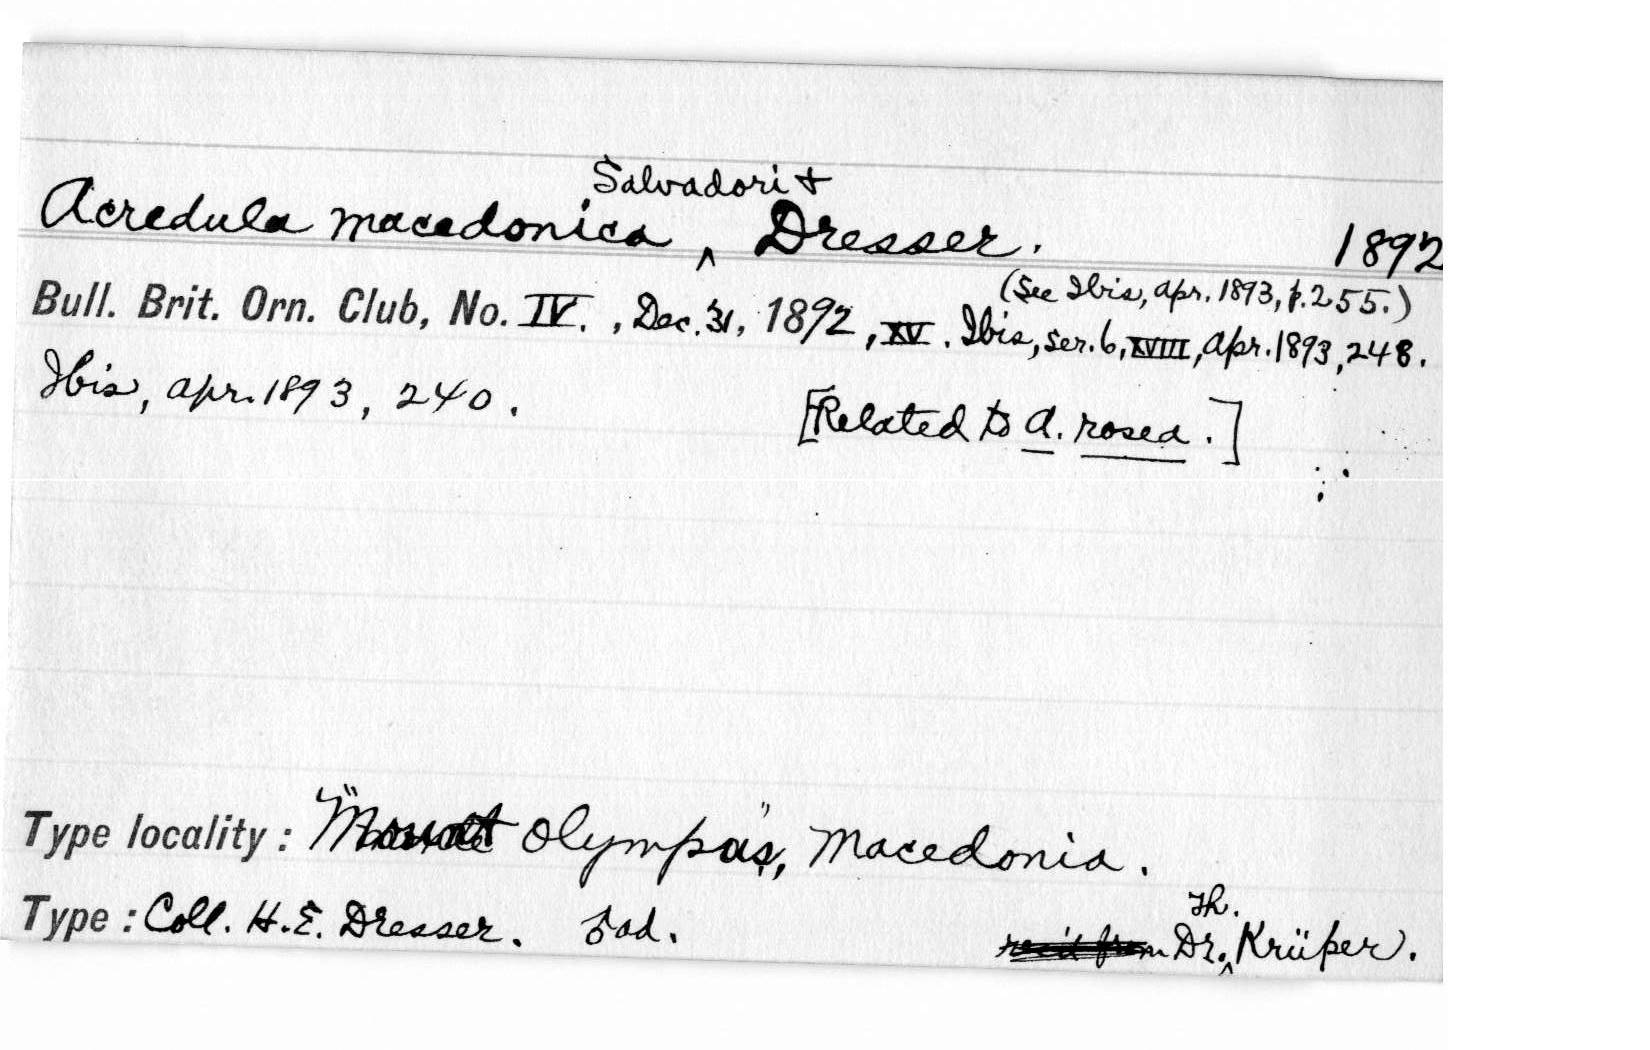 Acredula macedonica Salvadori & Dresser. 1892
(See Ibis, Apr. 1893, p. 255.)
Bull. Brit. Orn. Club, No. IV., Dec. 31, 1892, XV. Ibis, ser. 6, XVIII, Apr. 1893, 248.
Ibis, Apr. 1893, 240.
[Related to A. rosea.]
Type locality: "Mount Olympus," Macedonia.
Type: Coll. H. E. Dresser. ♂ ad. rec'd from Dr. Th. Krüper.